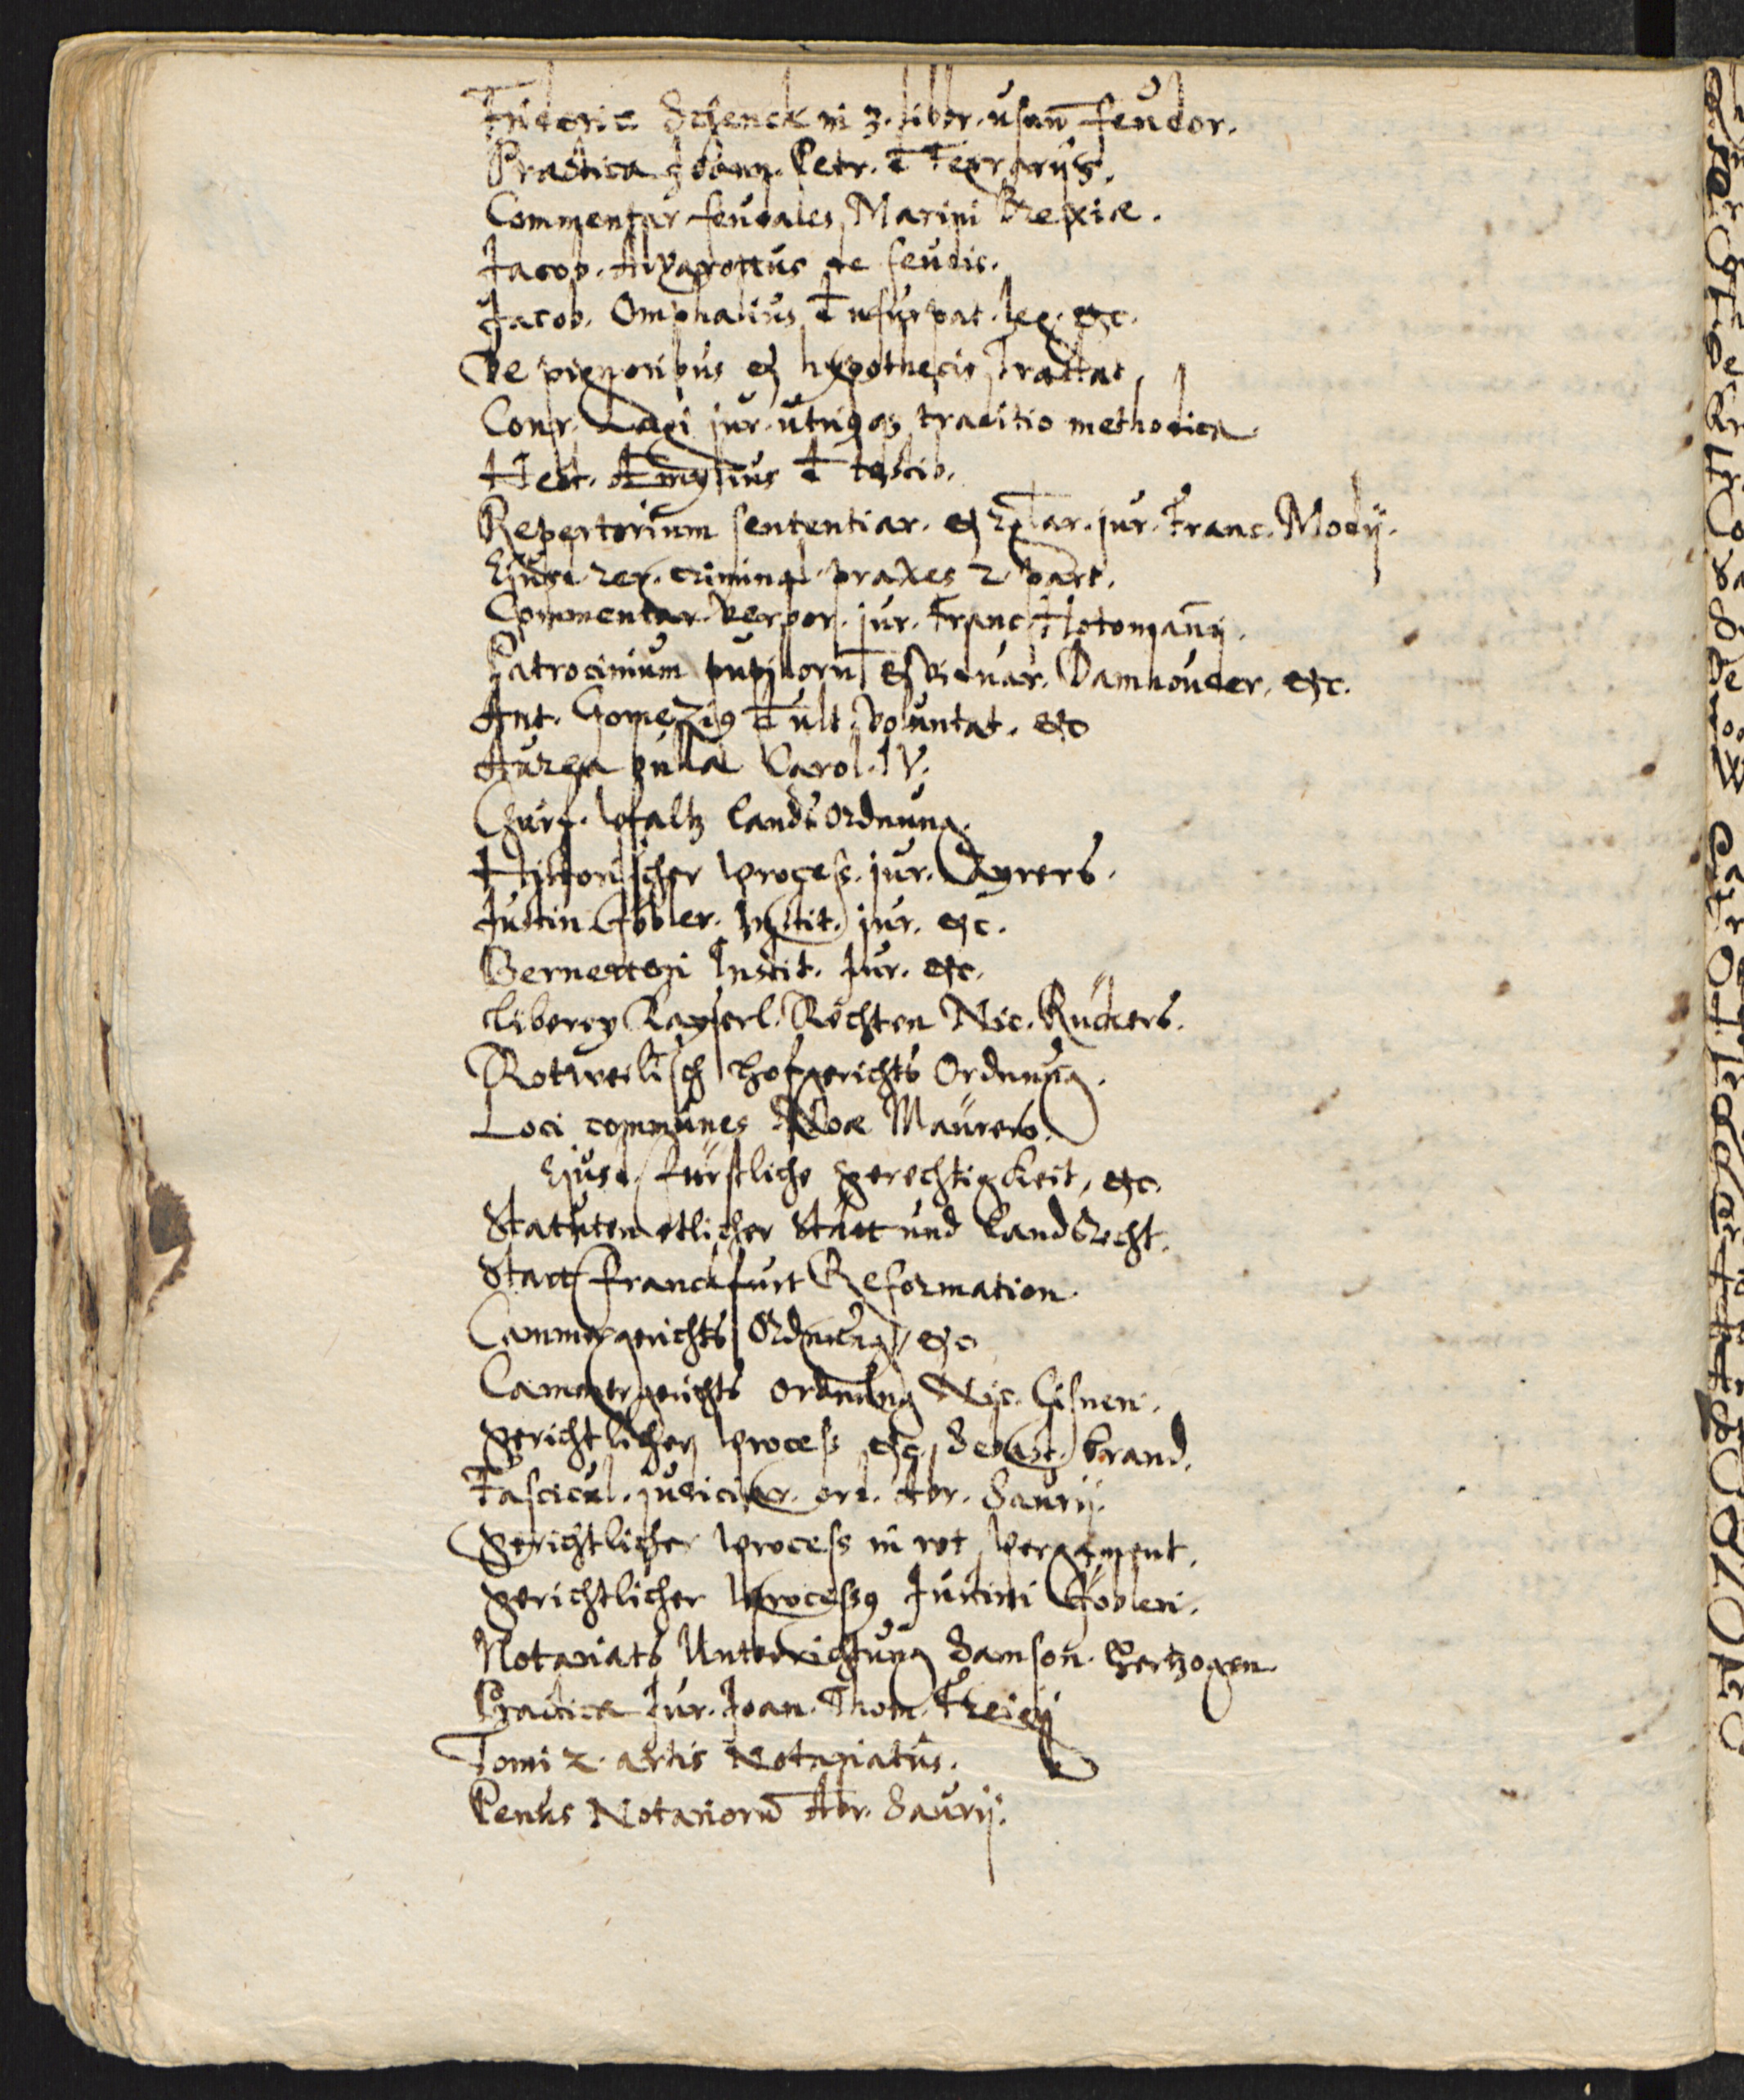 Frideric Schenck in 3. liber. usuū feudor.
Practica Joann. Petr. d Ferrarijs.
Commentar feudales Marini Frexiæ.
Jacob. Alvarottus de feudis.
Jacob. Omphalius d usurpat. leg. etc.
De pignoribus et hypothecis Tractat.
Conr. Lagi jur. utriusq; traditio methodica
Nell. Æmylius d testib.
Repertorium sententiar. et regular. jur. Franc. Mody.
Ejusd. rer. criminal. praxes 2 part.
Commentar. verbor. jur. Franc. Hotomanij.
Patrocinium pupillorū et viduar. Damhouder, etc.
Ant. Gomezi9 d ult. voluntat. etc
Aurea bulla Carol. IV.
Churf. Pfaltz Landsordnung.
Historischer Process. jur. Ayrers.
Justin. Gobler. Instit. jur. etc.
Bernertegi Instit. Jur. etc.
Liberey Kayserl. Rechten Nic. Ruckers.
Rotweilisch Hofgerichts Ordnung.
Loci communes Noæ Maürers.
Ejusd. fürstliche gerechtigkeit, etc.
Statuten etlicher Statt und Landsrecht.
Statt Franckfurt Reformation.
Cammergerichts Ordnung, etc
Cammergerichts ordnung Nic. Cisneri.
gerichtlicher Process etc, Sebast. brand.
Fascicul. judiciar. ord. Abr. Saurij.
gerichtlicher Process in rot Pergament.
gerichtlicher Process9 Justini Gobleri.
Notariats Unterrichtung Samson. Hertzogen.
Practica Jur. Joan. Thom. Freigij
Tomi 2. artis Notariatus.
Penus Notariorū Abr. Saurij.